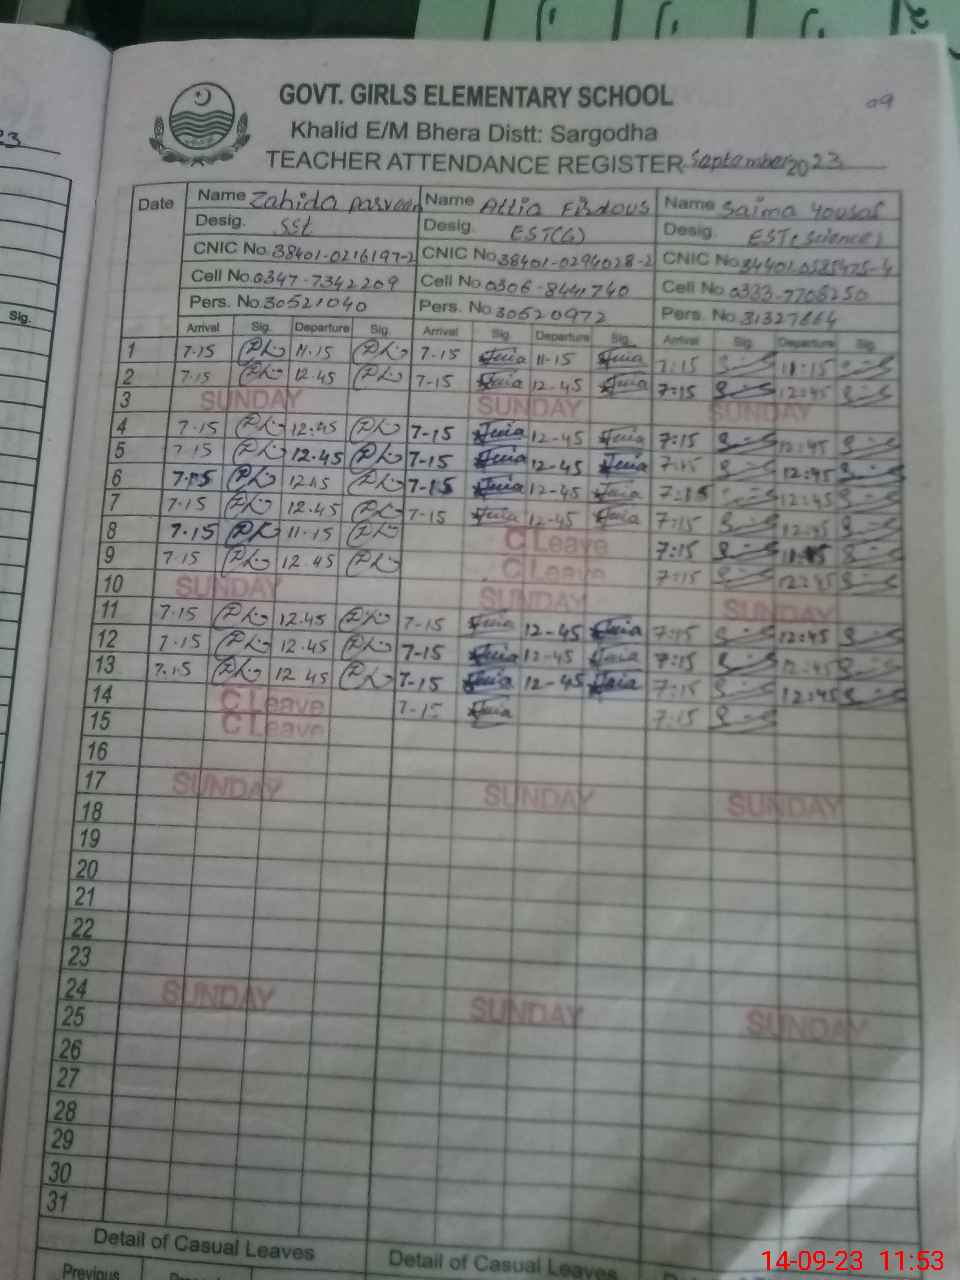 09
GOVT. GIRLS ELEMENTARY SCHOOL
Khalid E/M Bhera Distt: Sargodha
TEACHER ATTENDANCE REGISTER September 2023
23
Sig.
Date Name Zahida Parveen Name Attia Firdous Name Saima Yousaf
Desig. SST Desig. EST(G) Desig. EST(Science)
CNIC No. 38401-0216197-2 CNIC No. 38401-0294028-2 CNIC No.
Cell No. 0347-7342209 Cell No. 0306-8441740 Cell No.
Pers. No. 30521040 Pers. No. 30520972 Pers. No. 31327664
Arrival Sig. Departure Sig. Arrival Sig. Departure Sig. Arrival Sig. Departure Sig.
1 7-15 11-15 7-15 11-15 7:15 11:15
2 7-15 12.45 7-15 12-45 7:15 12:45
3 SUNDAY SUNDAY SUNDAY
4 7-15 12.45 7-15 12-45 7:15 12:45
5 7-15 12.45 7-15 12-45 7:15 12:45
6 7.15 7-15 12-45 7:15 12:45
7 7.15 12.45 7-15 12-45 7:15 12:45
8 7.15 11-15 C Leave 7:15
9 7.15 12.45 C Leave 7:15 12:45
10 SUNDAY SUNDAY SUNDAY
11 7.15 12.45 7-15 12-45 7:15 12:45
12 7.15 12.45 7-15 12-45 7:15 12:45
13 7.15 12 45 7-15 12-45 7:15 12:45
14 C Leave 7-15 7:15
15 C Leave
16
17 SUNDAY SUNDAY SUNDAY
18
19
20
21
22
23
24 SUNDAY SUNDAY SUNDAY
25
26
27
28
29
30
31
Detail of Casual Leaves Detail of Casual Leaves
Previous
14-09-23 11:53